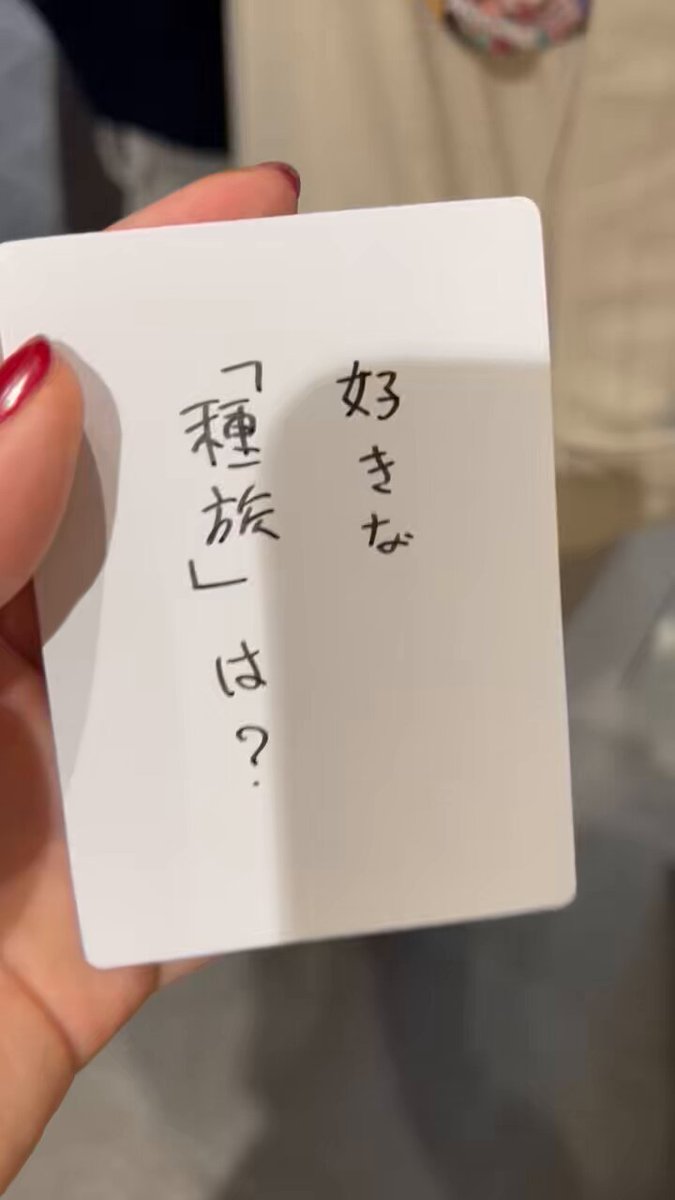 好きな
「種族」は?